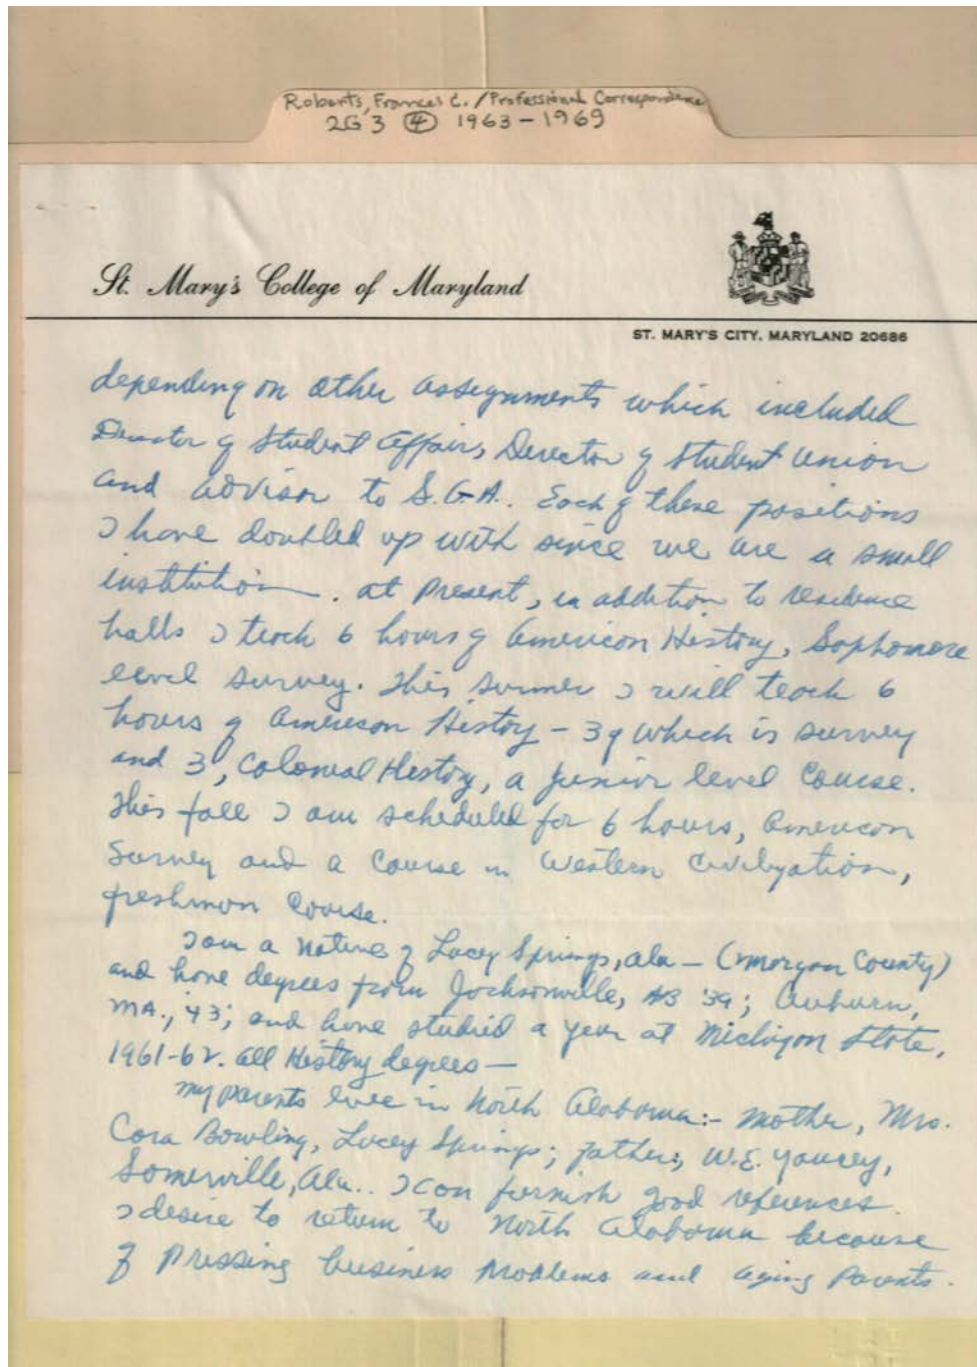 Roberts, Frances C. / Professional Correspondence
2G3 4 1963-1969
St. Mary's College of Maryland
ST. MARY'S CITY, MARYLAND 20686
depending on other assignments which included
Director of Student Affairs, Director of Student Union
and advisor to S.G.A. Each of these positions
I have doubled up with since we are a small
institution. At present, in addition to residence
halls I teach 6 hours of American History, Sophomore
level survey. This summer I will teach 6
hours of American History - 3 of which is survey
and 3, Colonial History, a junior level course.
This fall I am scheduled for 6 hours, American
Survey and a Course in Western Civilization,
freshman course.
I am a native of Lacey Springs, Ala - (Morgan County)
and have degrees from Jacksonville, AB '39; Auburn,
MA., '43; and have studied a year at Michigan State,
1961-62. All History degrees -
My parents live in North Alabama:- Mother, Mrs.
Cora Bowling, Lacey Springs; father, W.E. Yancey,
Somerville, Ala.. I can furnish good references.
I desire to return to North Alabama because
of pressing business problems and aging parents.